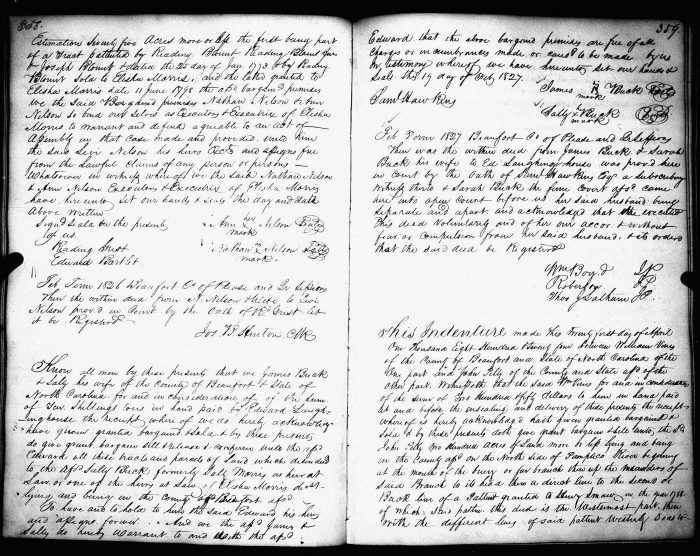 358.
Estimation Seventy five Acres more or less the first being part
of a Tract pattented by Reading Blount Reading Blount Junr
& Joseph Blount dated the 20 day of Jany 1773 & by Reading
Blount Sold to Elisha Morris, and the later granted to
Elisha Morris date 11 June 1798 the afsd bargained premises
we the said Bargained premises Nathan Nelson & Ann
Nelson do bind our selves as Executors & Executrix of Elisha
Morris to warrant and defend agreable to an Act of
Assembly in that Case made and provided unto him
the said Levi Nelson his heirs Exrs and assigns free
from the Lawful Claims of any person or persons
Whatsoever in witness whereof we the said Nathan Nelson
& Ann Nelson Executors & Executrix of Elisha Morris
have hereunto set our hands & seals the day and date
above written
Signd Seald in the presents of us
Ann her mark Nelson Seal
Reading
Nathan his mark Nelson Seal
Edward Bartlet
Feb Term 1826 Beaufort Co of Pleas and Qr Sessions
Then the within deed from N Nelson & Wife to Levi
Nelson provd in Court by the Oath of Rd Let
it be Registered
Jos. B. Hinton Clk
Know all men by these presents that we James Buck
& Sally his wife of the County of Beaufort & State of
North Carolina for and in consideration of the Sum
of Ten Shillings to us in hand paid by Edward Laugh
inghouse the receipt where of we do hereby acknowledge
have given granted bargained & sold & by these presents
do give grant bargain sell release & confirm unto the afsd
Edward all those tracts and parcels of Land which descended
to the Afsd Sally Buck formerly Sally Morris as heir at
Law, or one of the heirs at Law of Elisha Morris decd
lying and being in the County of Beaufort afsd
To have and to hold to him the said Edward his heirs
and assigns forever And we the afsd James &
Sally do hereby Warrant to and with the afsd
359.
Edward that the above bargaind premises are free of all
Charges or incumbrances made or causd to be made by us
In testimony whereof we have hereunto set our hands &
Seals this 19 day of Feby 1827.
James his mark Buck Seal
Saml Hawkins
Sally her mark Buck Seal
Feb Term 1827 Beaufort Co of Pleas and Qr Sessions
Then was the within deed from James Buck & Sarah
Buck his wife to Ed Laughinghouse was provd here
in Court by the Oath of Saml Hawkins Esqr a subscribing
Witness thereto & Sarah Buck the fime Covert afsd came
into open Court before us her said husband being
separate and apart and acknowledged that she executed
this deed Voluntarily and of her own accord & without
fear or Compulsion from her said husband. & its ordered
that the said deed be Registered
Wm Boyd JP
JP
Thos J Latham JP
This Indenture made this Twenty first day of April
One Thousand Eight Hundred Twenty four between William Vines
of the County of Beaufort and State of North Carolina of the
One part and John Tilly of the County and State afsd of the
other part. Witnesseth that the said Wm Vines for and in consideration
of the sum of Two Hundred & fifty dollars to him in hand paid
at and before the ensealing and delivery of these presents the receipt
whereof is hereby acknowledgd hath given granted bargained &
Sold & by these presents doth give grant bargain & sell unto, the Sd
John Tilly Two Hundred Acres of Land more or less lying and being
in the County afsd on the North Side of Pamplico River begining
at the mouth of the or far branch then up the meanders of
said Branch to its head then a direct line to the second or
Back line of a Pattent granted to Henry in the year 1738
of which said patten this deed is the Westermost part. then
with the different lines of said patent Westerly down to